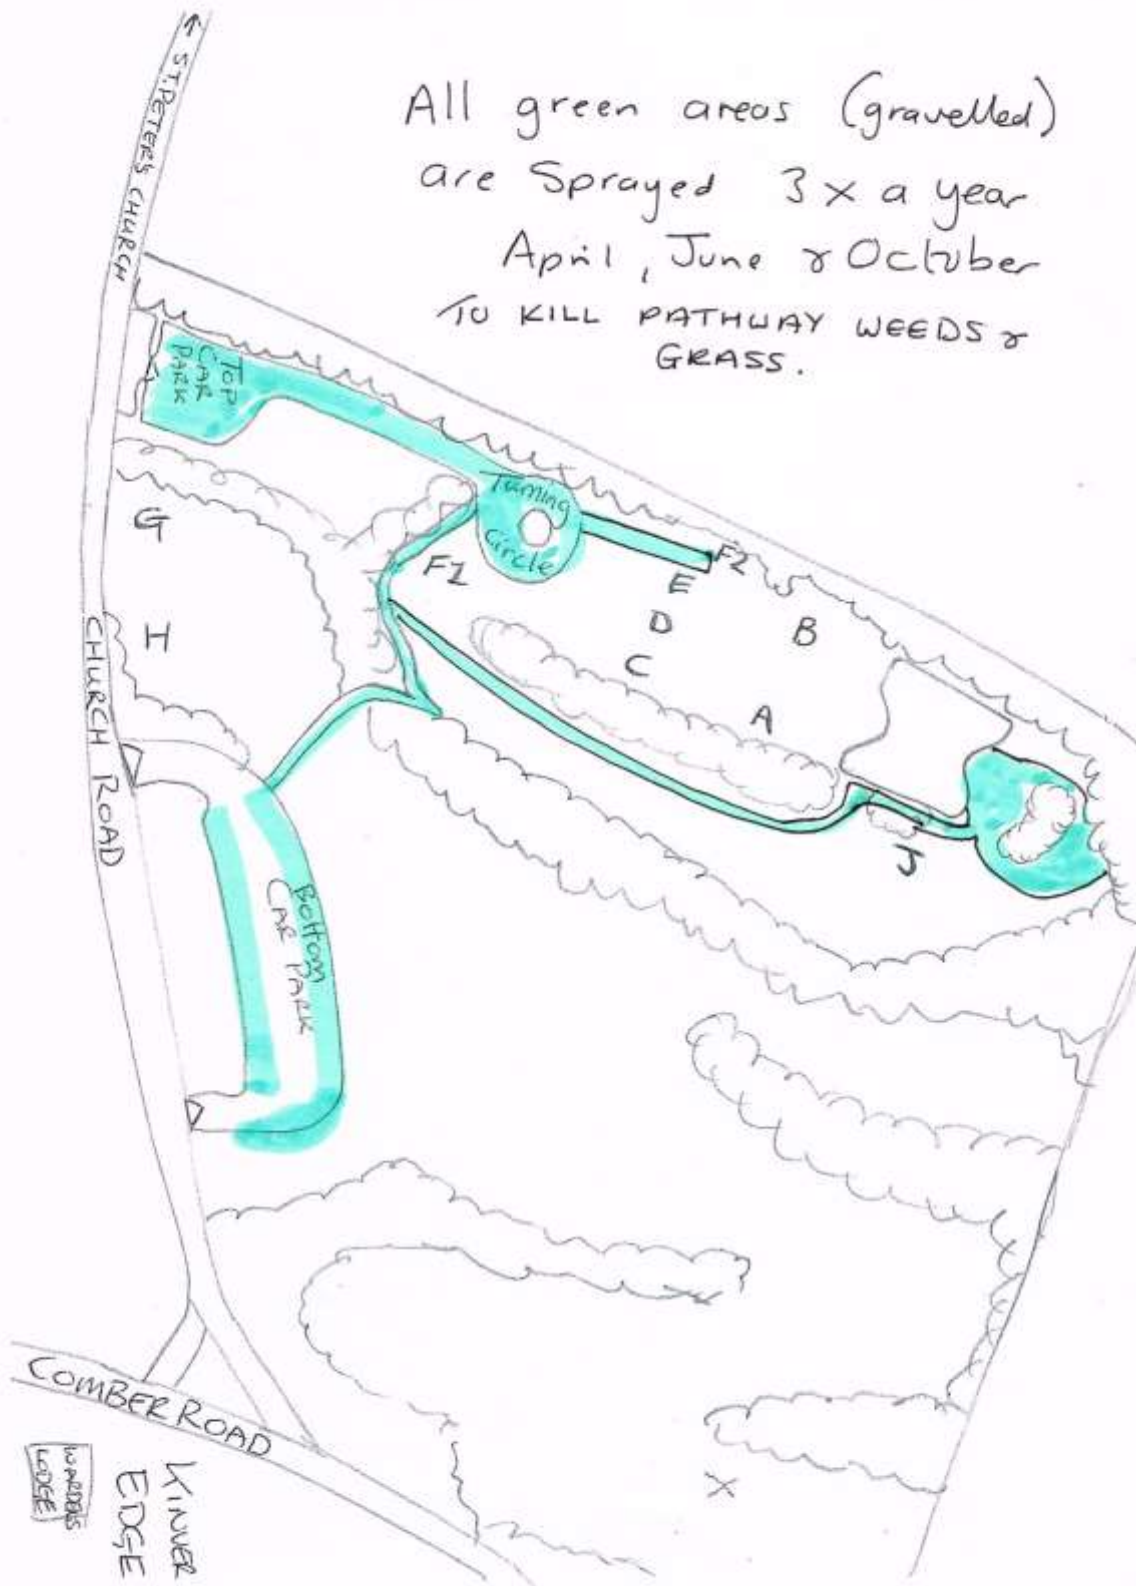 ↑ ST. PETERS CHURCH
All green areas (gravelled)
are Sprayed 3 x a year
April, June & October
TO KILL PATHWAY WEEDS &
GRASS.
TOP
CAR
PARK
Turning
Circle
G
F1
F2
E
D
B
C
H
A
CHURCH ROAD
J
Bottom
CAR PARK
COMBER ROAD
X
WARDENS
LODGE
KINVER
EDGE